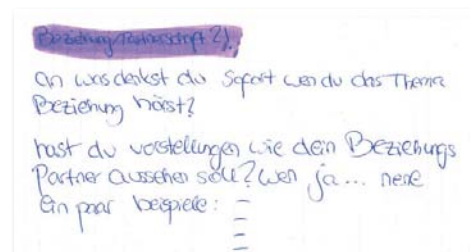 Beziehung/Partnerschaft 2).
An was denkst du Sofort wen du das Thema
Beziehung hörst?
hast du vorstellungen wie dein Beziehungs
Partner aussehen soll? Wen ja... nene
Ein paar beispiele: -
-
-
-